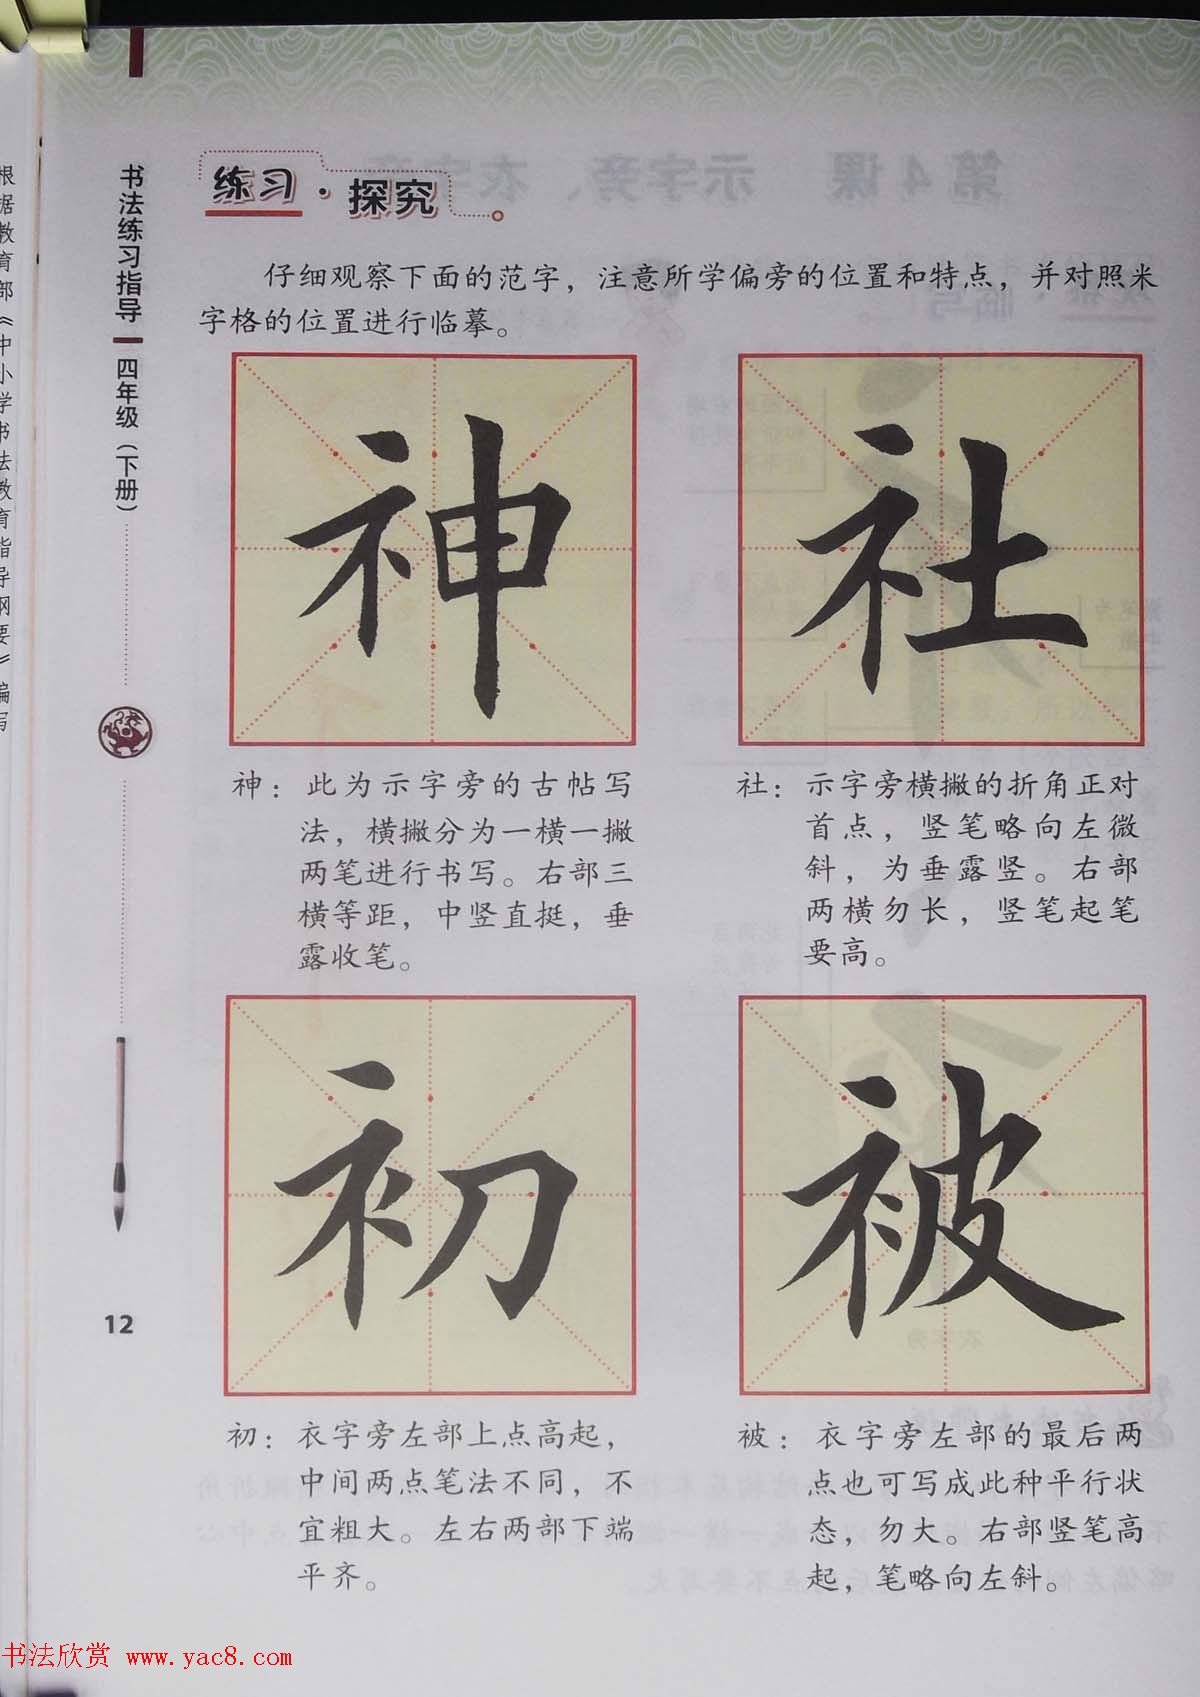 根据教育部《中小学书法教育指导纲要》编写
书法练习指导
四年级(下册)
12
练习·探究
仔细观察下面的范字，注意所学偏旁的位置和特点，并对照米
字格的位置进行临摹。
神
社
神：此为示字旁的古帖写
法，横撇分为一横一撇
两笔进行书写。右部三
横等距，中竖直挺，垂
露收笔。
社：示字旁横撇的折角正对
首点，竖笔略向左微
斜，为垂露竖。右部
两横勿长，竖笔起笔
要高。
初
被
初：衣字旁左部上点高起，
中间两点笔法不同，不
宜粗大。左右两部下端
平齐。
被：衣字旁左部的最后两
点也可写成此种平行状
态，勿大。右部竖笔高
起，笔略向左斜。
书法欣赏 www.yac8.com